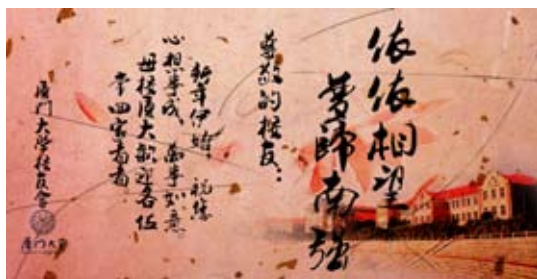 依依相望
夢歸南强
尊敬的校友：
新年伊始，祝您
心想事成、萬事如意
母校厦大歡迎各位
常回家看看
厦门大学校友会
厦门大学